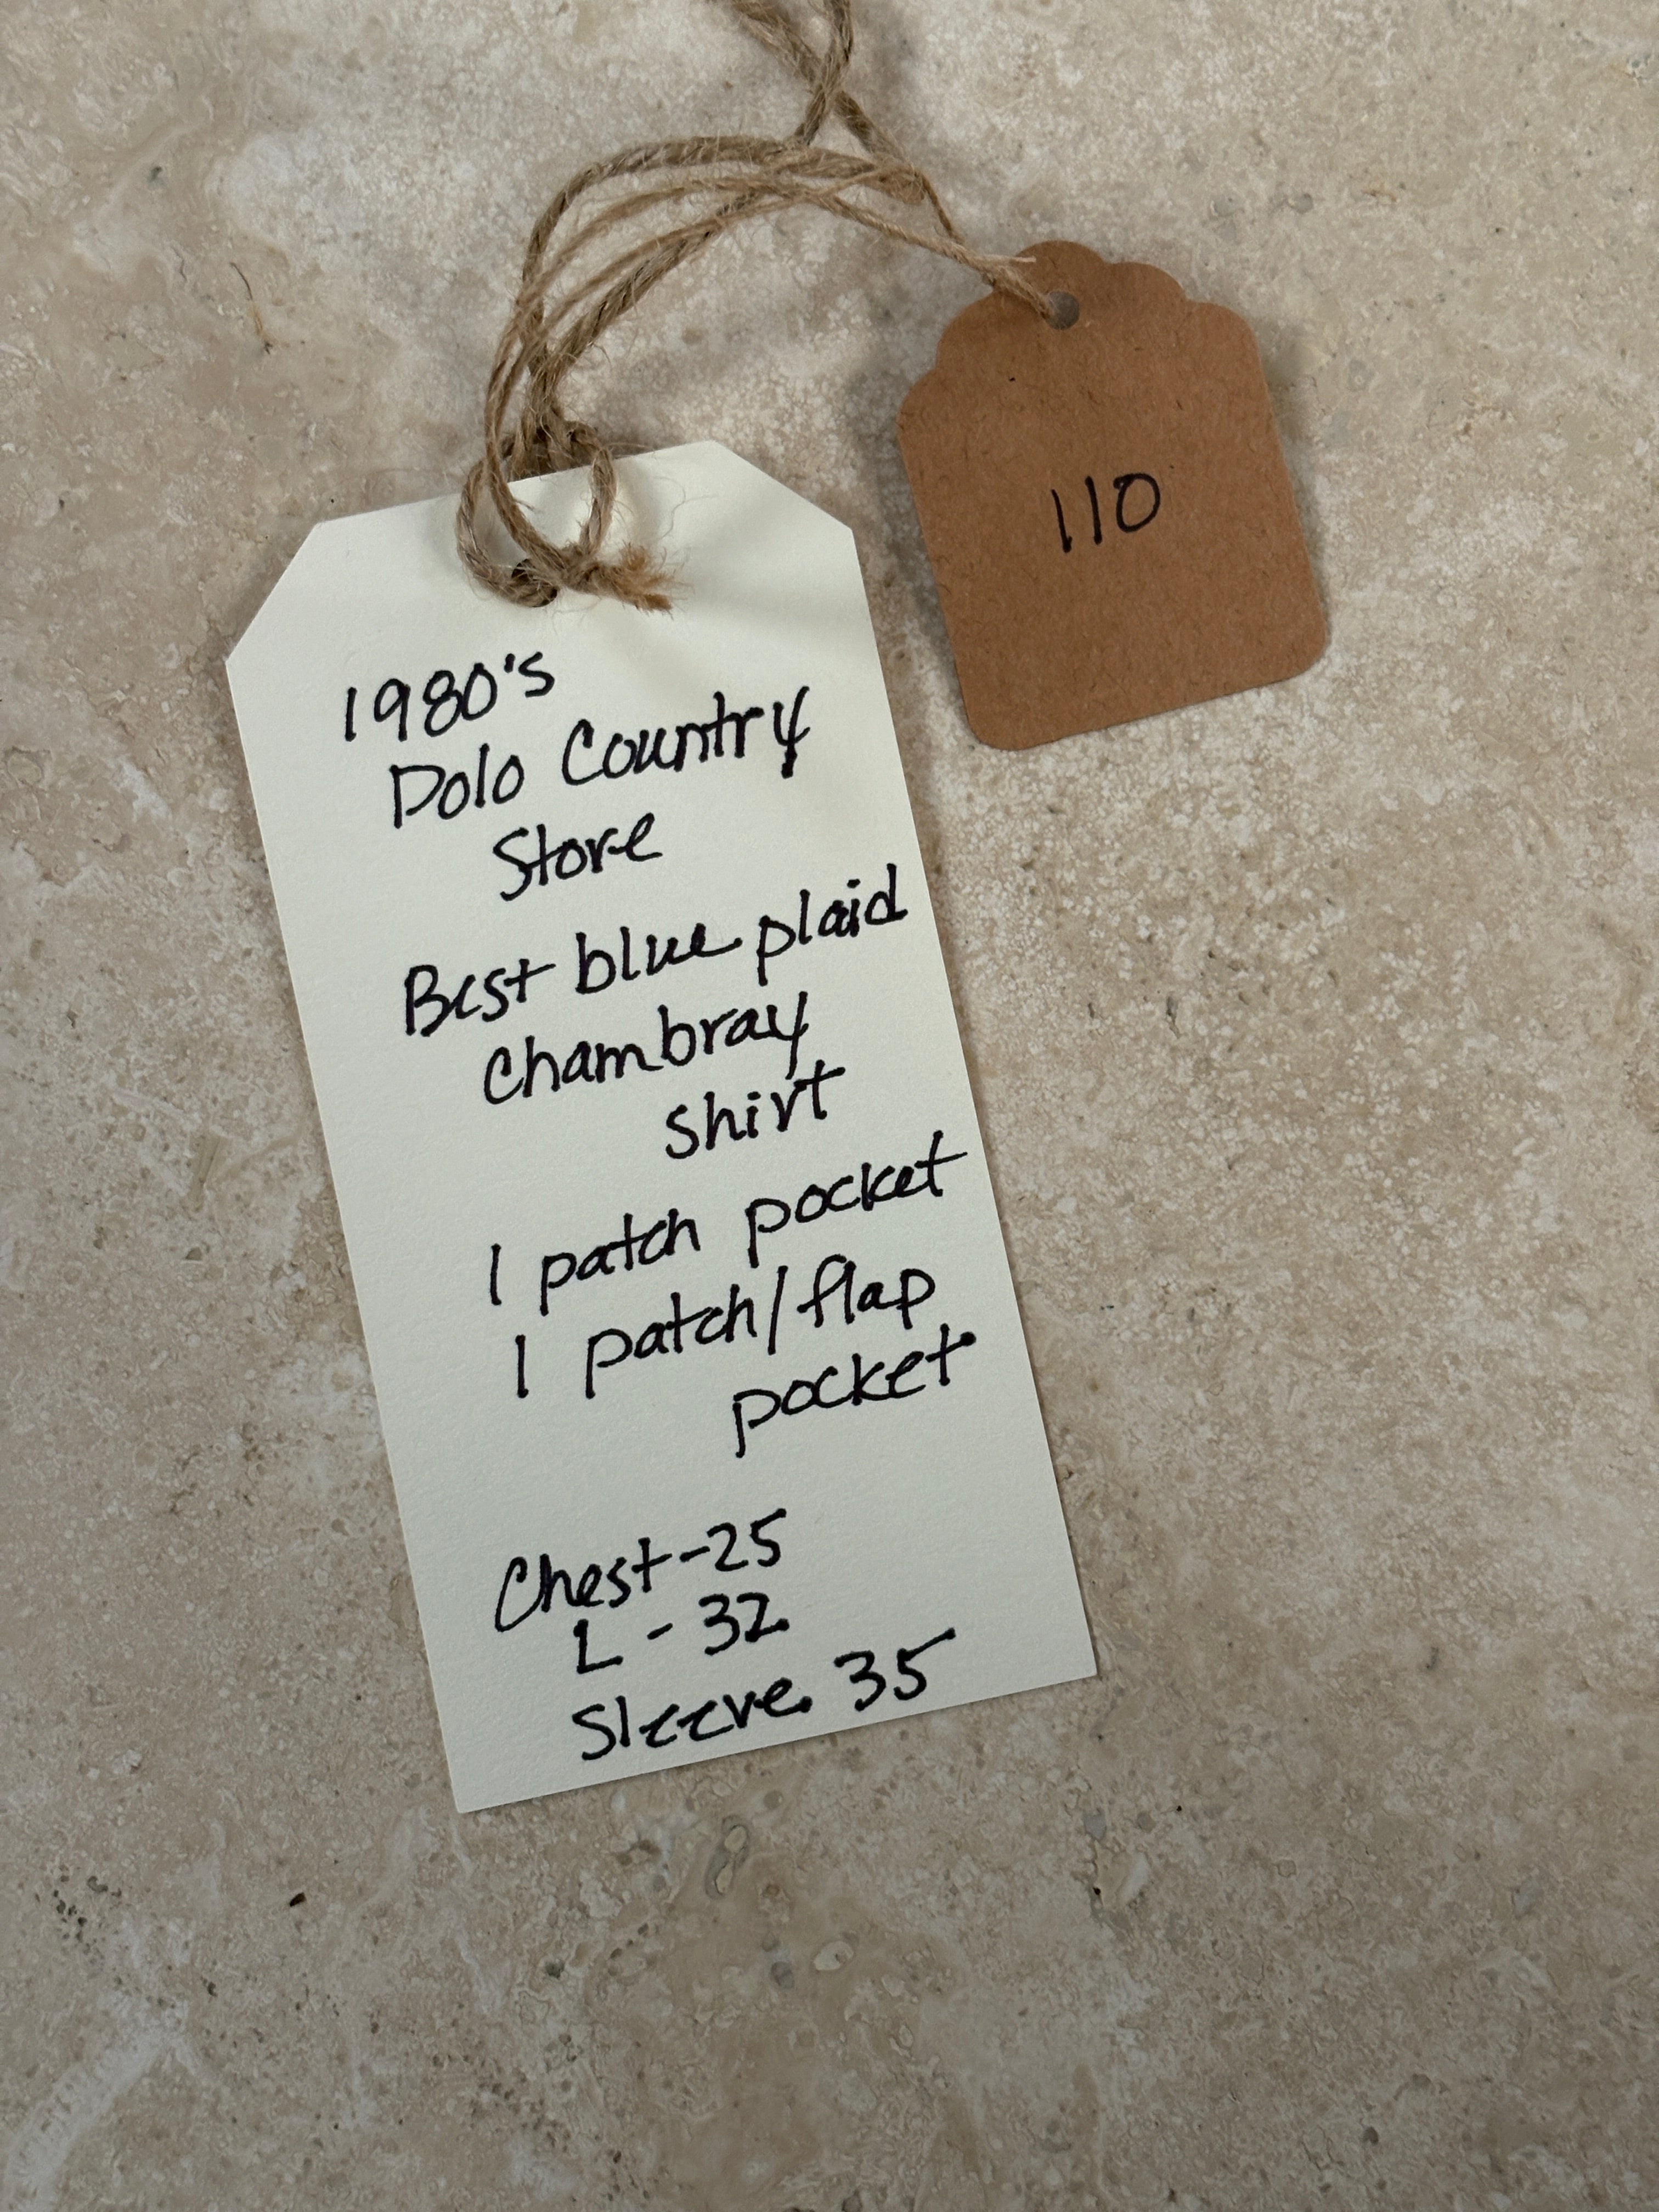 110
1980's
Polo Country
Store
Best blue plaid
chambray
shirt
1 patch pocket
1 patch/flap
pocket
Chest-25
L-32
Sleeve 35